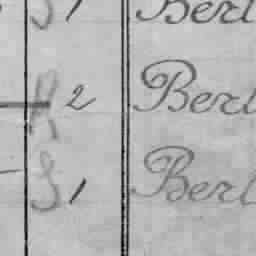 S 1 Berl
R 2 Berl
S 1 Berl